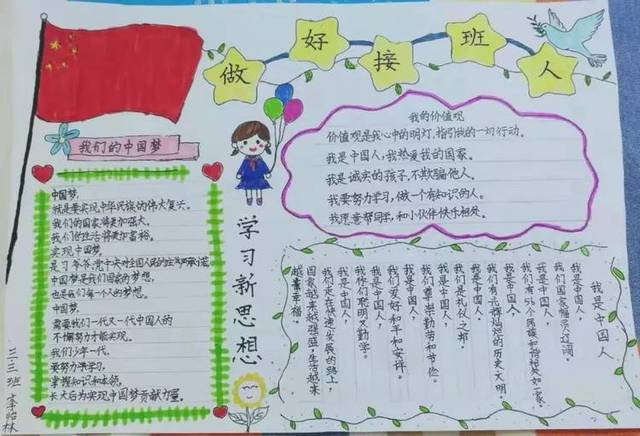 做好接班人
我们的中国梦
中国梦,
就是要实现中华民族的伟大复兴。
我们的国家将更加强大。
我们的生活将更加富裕。
实现中国梦
是习爷爷、党中央对全国人民的庄严承诺
中国梦是我们国家的梦想,
也是我们每一个人的梦想。
中国梦
需要我们一代又一代中国人的
不懈努力才能实现。
我们少年一代。
要努力学习。
掌握知识和本领。
长大后为实现中国梦贡献力量。
学习新思想
我的价值观
价值观是我心中的明灯,指引我的一切行动。
我是中国人,我热爱我的国家。
我是诚实的孩子,不欺骗他人。
我要努力学习,做一个有知识的人。
我愿意帮同学,和小伙伴快乐相处。
我是中国人
我是中国人,
我们国家幅员辽阔。
我是中国人,
我们有56个民族和谐相处如一家。
我是中国人,
我们有光辉灿烂的历史文明。
我是中国人,
我们是礼仪之邦
我们尊崇勤劳和节俭。
我是中国人,
我们爱好和平和安祥。
我是中国人,
我们聪明又勤学。
我是中国人,
我们走在快速发展的路上,
国家越来越强盛,生活越来
越富幸福。
三三班 李怡林